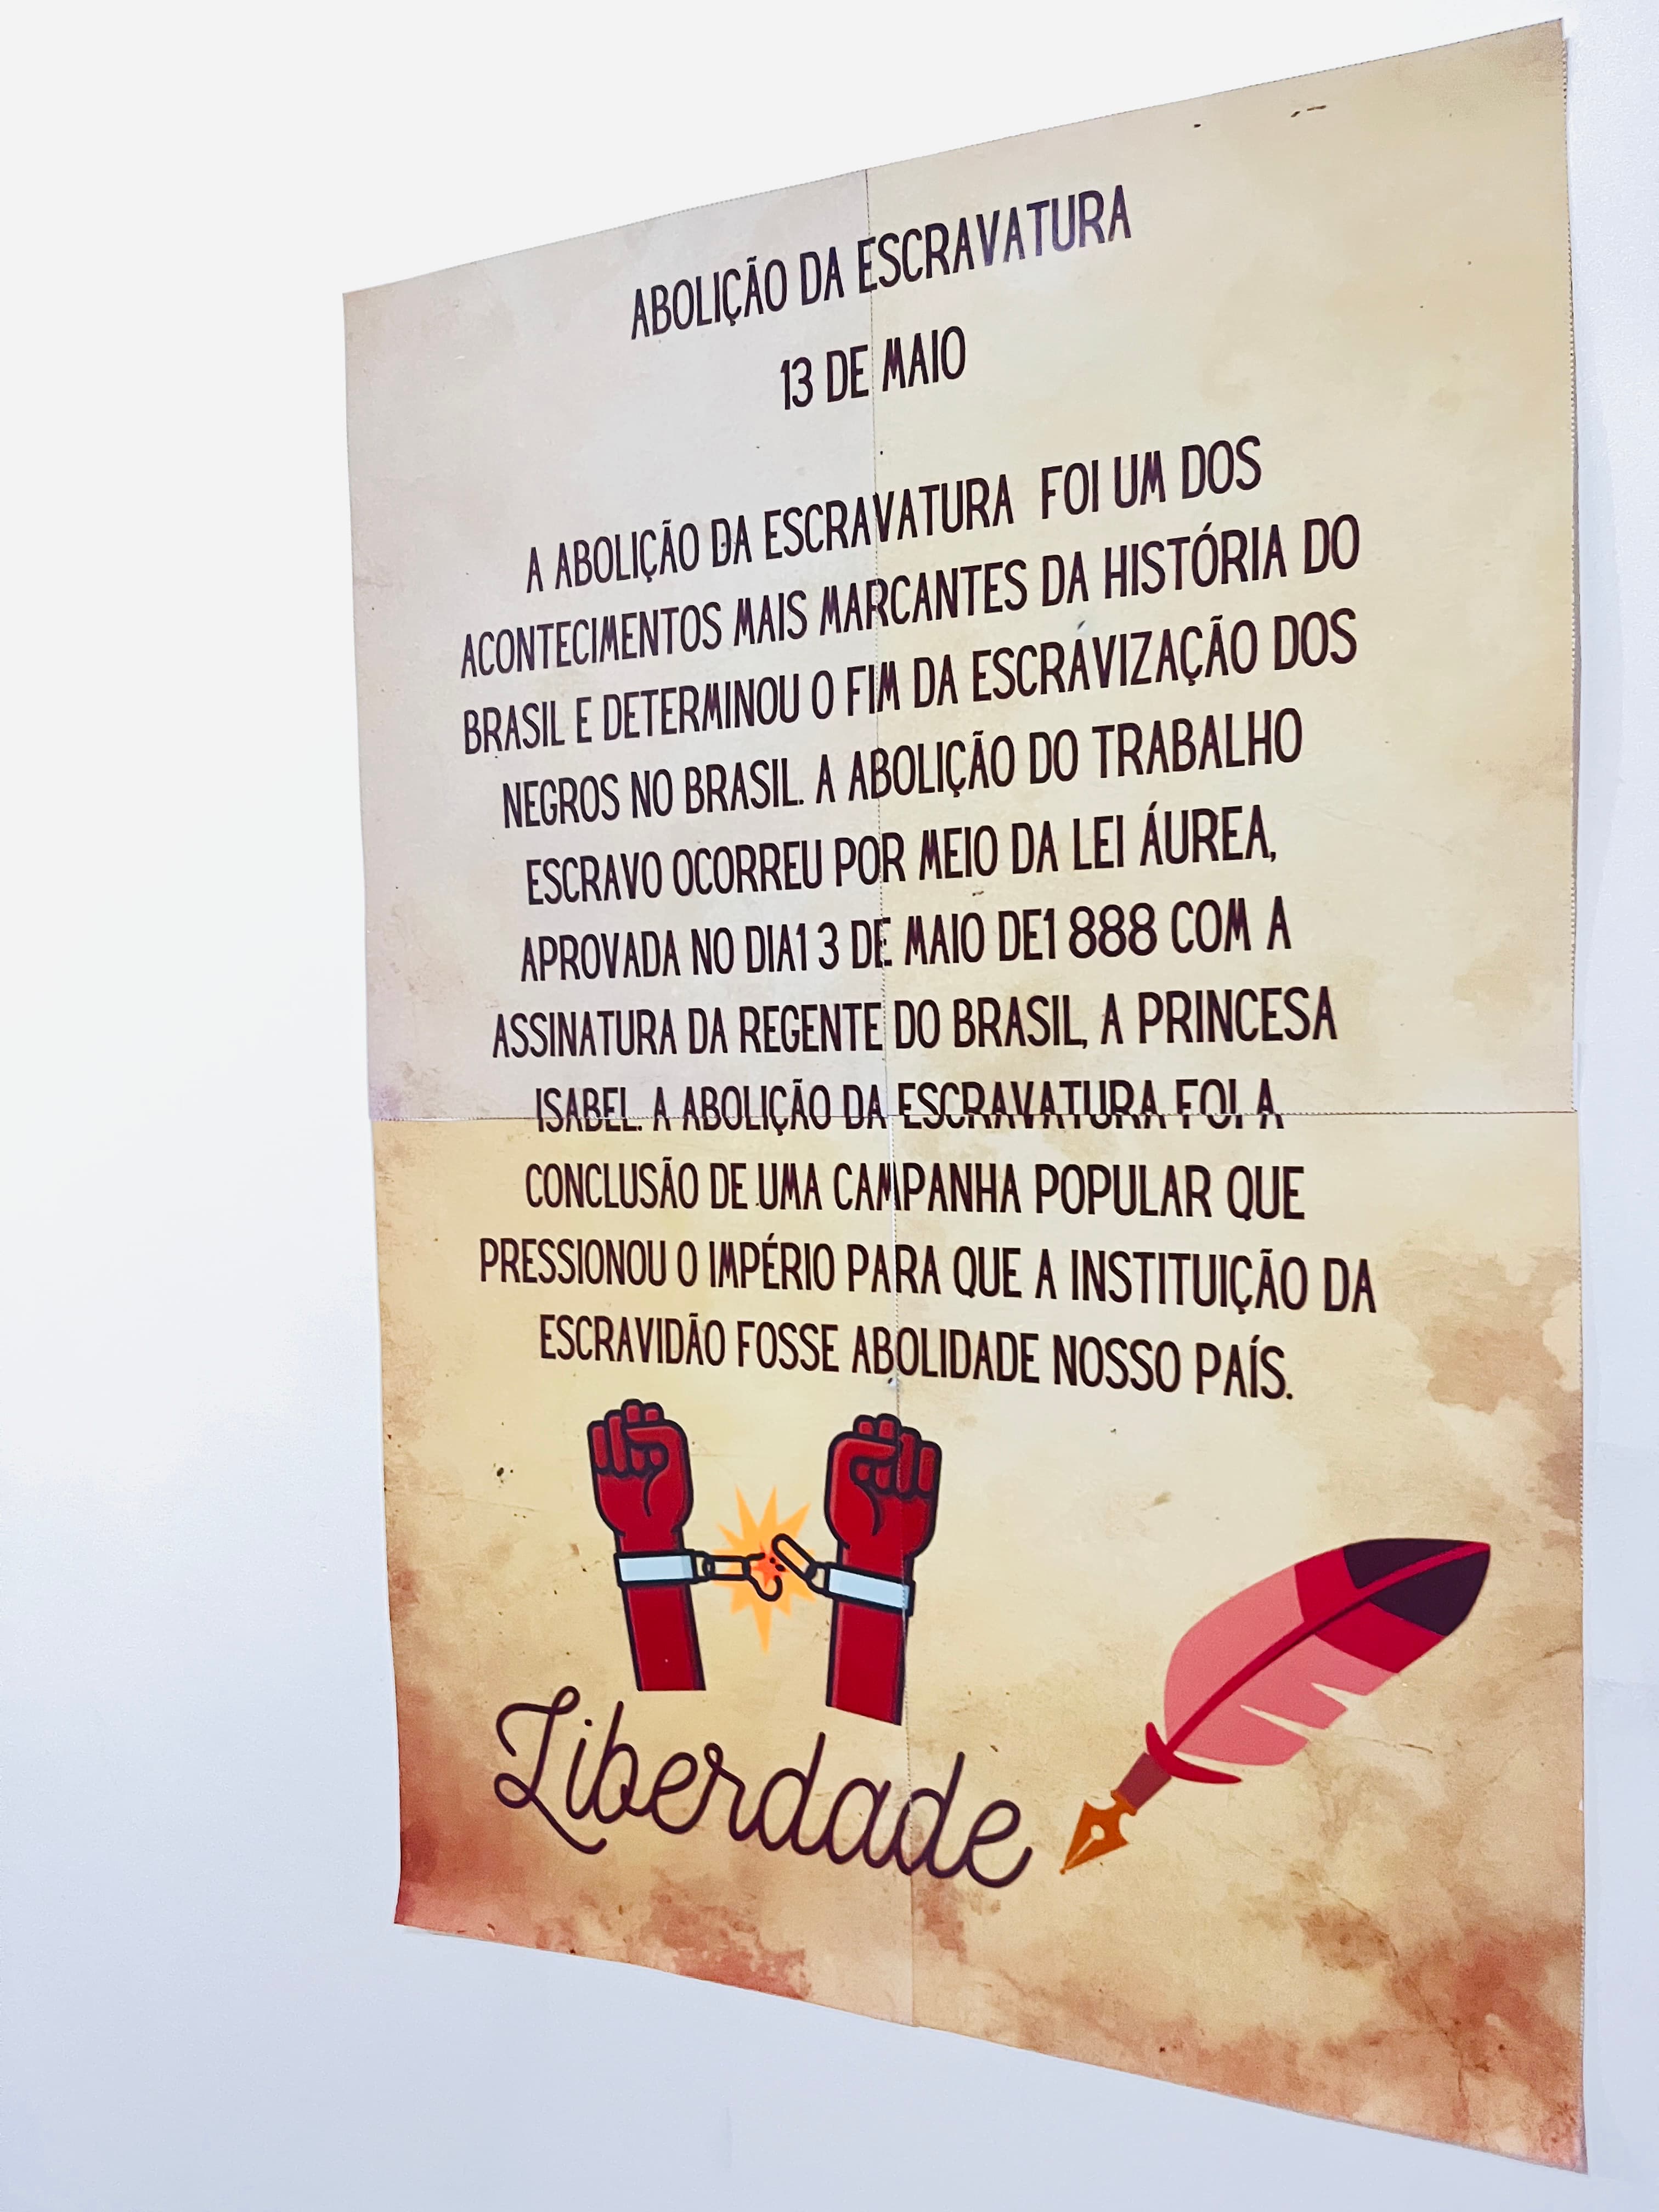 ABOLIÇÃO DA ESCRAVATURA
13 DE MAIO
A ABOLIÇÃO DA ESCRAVATURA FOI UM DOS
ACONTECIMENTOS MAIS MARCANTES DA HISTÓRIA DO
BRASIL E DETERMINOU O FIM DA ESCRAVIZAÇÃO DOS
NEGROS NO BRASIL. A ABOLIÇÃO DO TRABALHO
ESCRAVO OCORREU POR MEIO DA LEI ÁUREA,
APROVADA NO DIA1 3 DE MAIO DE1 888 COM A
ASSINATURA DA REGENTE DO BRASIL, A PRINCESA
ISABEL. A ABOLIÇÃO DA ESCRAVATURA FOI A
CONCLUSÃO DE UMA CAMPANHA POPULAR QUE
PRESSIONOU O IMPÉRIO PARA QUE A INSTITUIÇÃO DA
ESCRAVIDÃO FOSSE ABOLIDADE NOSSO PAÍS.
Liberdade